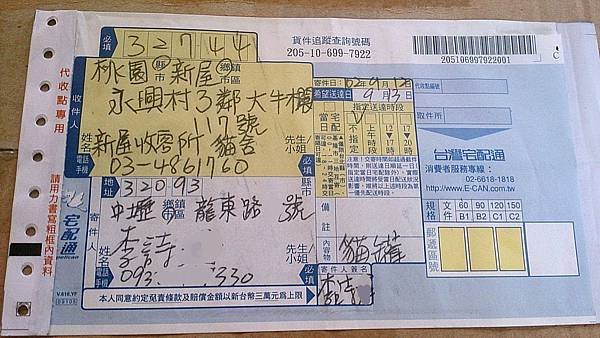 貨件追蹤查詢號碼
205-10-699-7922
205106997922001
C
必填 32744
桃園 縣市 新屋 鄉鎮市區
永興村3鄰大牛欄
117號
新屋收容所 貓舍
姓名 先生小姐
電話手機 03-4861760
收件人
代收點專用
請用力書寫粗框內資料
寄件日 02年9月12日
希望送達日 9月13日
指定送達時段
宅配當日
不指定
上午時段
12時~17時
17時~20時
代收點編號
取件所
台灣宅配通
消費者服務專線：
02-6618-1818
http://www.E-CAN.com.tw
規格 文件 60 90 120 150
B1 B2 C1 C2
郵遞區號
地址 32093
必填
縣市
中壢 鄉鎮市區 龍東路 號
寄件人
姓名 李 先生小姐
電話手機 093 330
備註
內容物 貓罐
必填 寄件人簽名
李
本人同意約定免責條款及賠償金額以新台幣三萬元為上限
宅配通
pelican
V.616.YF